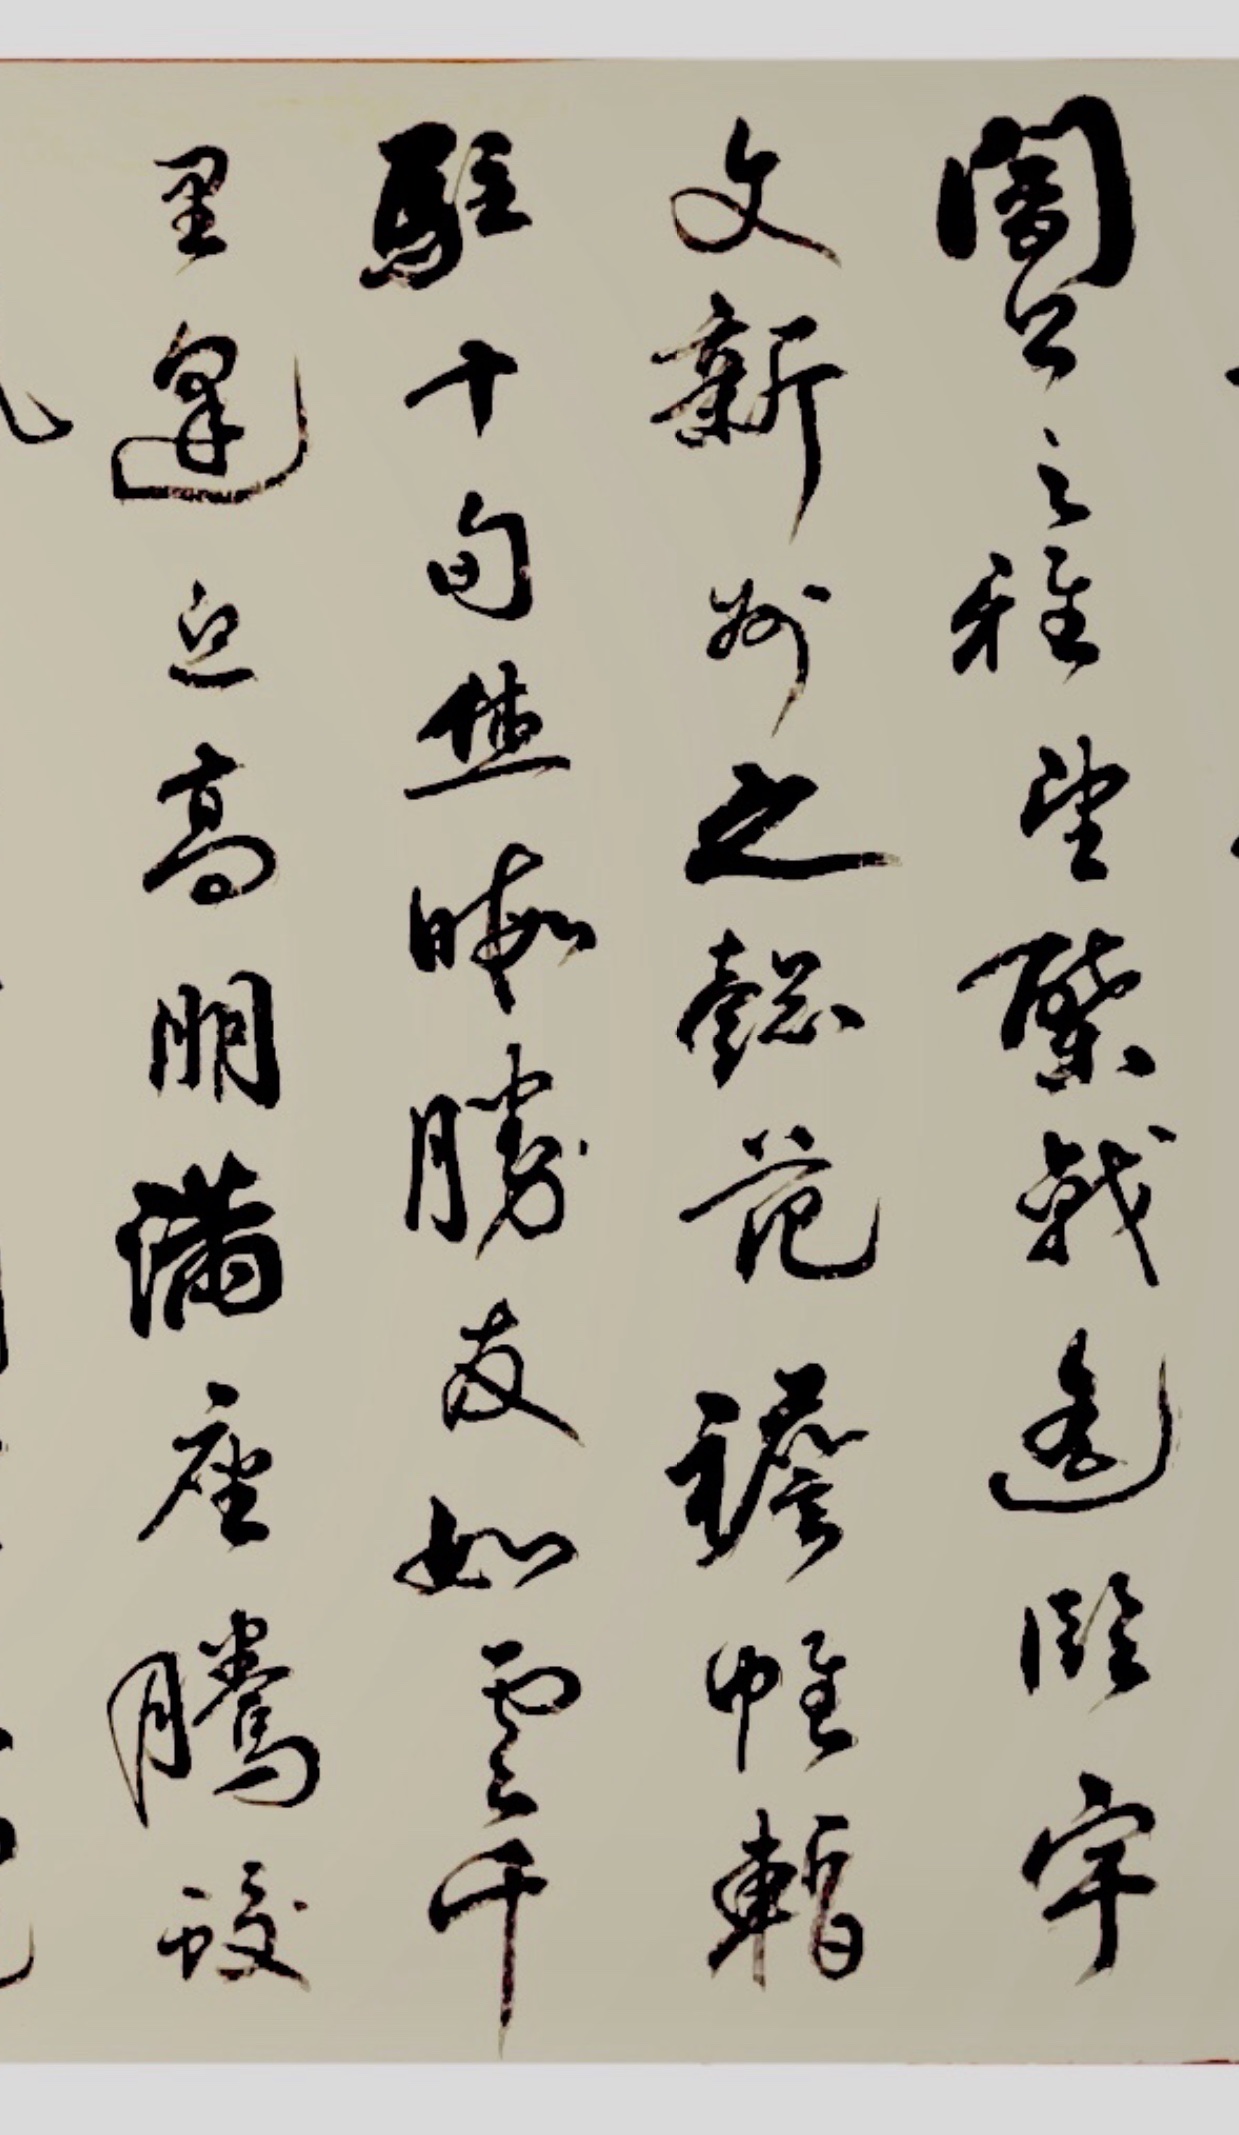 閻公之雅望棨戟遥臨宇
文新州之懿范襜帷暫
駐十旬烋暇勝友如雲千
里逢迎高朋滿座騰蛟